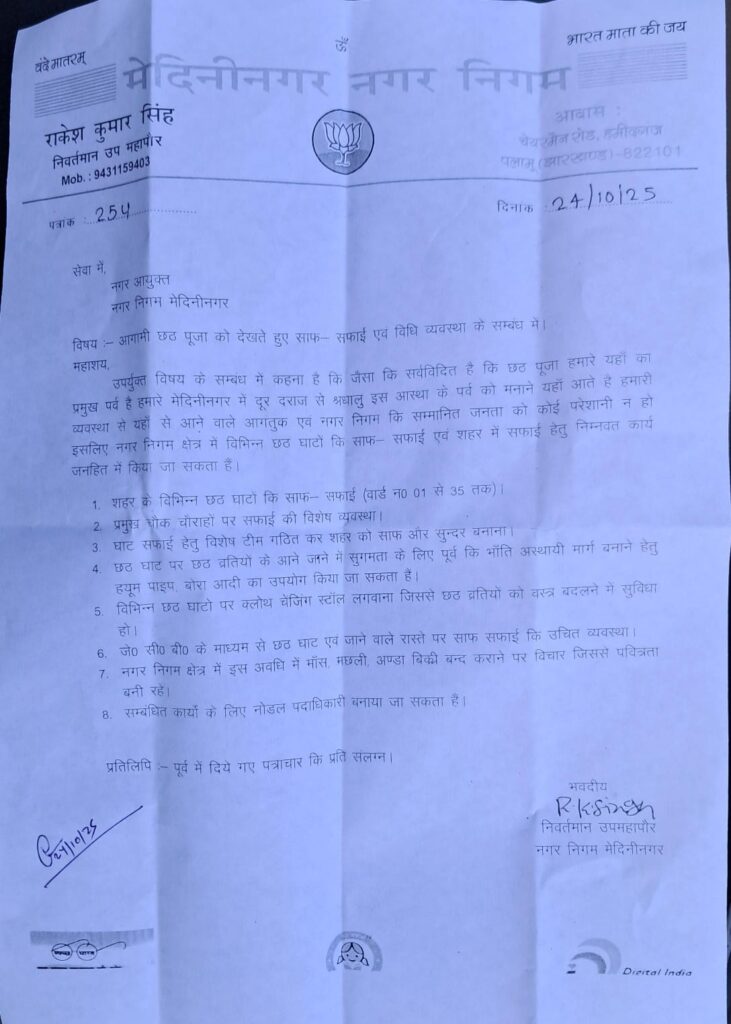 ॐ
वंदे मातरम्
भारत माता की जय
मेदिनीनगर नगर निगम
राकेश कुमार सिंह
निवर्तमान उप महापौर
Mob. : 9431159403
आवास :
चेयरमैन रोड, हमीदगंज
पलामू (झारखण्ड)-822101
पत्रांक : 254
दिनांक : 24/10/25
सेवा में,
नगर आयुक्त
नगर निगम मेदिनीनगर
विषय :– आगामी छठ पूजा को देखते हुए साफ– सफाई एवं विधि व्यवस्था के सम्बंध में।
महाशय,
उपर्युक्त विषय के सम्बंध में कहना है कि जैसा कि सर्वविदित है कि छठ पूजा हमारे यहाँ का
प्रमुख पर्व है हमारे मेदिनीनगर में दूर दराज से श्रधालु इस आस्था के पर्व को मनाने यहाँ आते है हमारी
व्यवस्था से यहाँ से आने वाले आगंतुक एवं नगर निगम कि सम्मानित जनता को कोई परेशानी न हो
इसलिए नगर निगम क्षेत्र में विभिन्न छठ घाटों कि साफ– सफाई एवं शहर में सफाई हेतु निम्नवत कार्य
जनहित में किया जा सकता है।
1. शहर के विभिन्न छठ घाटो कि साफ– सफाई (वार्ड न0 01 से 35 तक)।
2. प्रमुख चौक चौराहों पर सफाई की विशेष व्यवस्था।
3. घाट सफाई हेतु विशेष टीम गठित कर शहर को साफ और सुन्दर बनाना।
4. छठ घाट पर छठ व्रतियों के आने जाने में सुगमता के लिए पूर्व कि भाँति अस्थायी मार्ग बनाने हेतु
हयूम पाइप, बोरा आदी का उपयोग किया जा सकता है।
5. विभिन्न छठ घाटो पर क्लोथ चेंजिंग स्टॉल लगवाना जिससे छठ व्रतियों को वस्त्र बदलने में सुविधा
हो।
6. जे0 सी0 बी0 के माध्यम से छठ घाट एवं जाने वाले रास्ते पर साफ सफाई कि उचित व्यवस्था।
7. नगर निगम क्षेत्र में इस अवधि में माँस, मछली, अण्डा बिकी बन्द कराने पर विचार जिससे पवित्रता
बनी रहे।
8. सम्बंधित कार्यो के लिए नोडल पदाधिकारी बनाया जा सकता है।
प्रतिलिपि :– पूर्व में दिये गए पत्राचार कि प्रति संलग्न।
भवदीय
R K Singh
निवर्तमान उपमहापौर
नगर निगम मेदिनीनगर
24/10/25
स्वच्छ भारत
Digital India